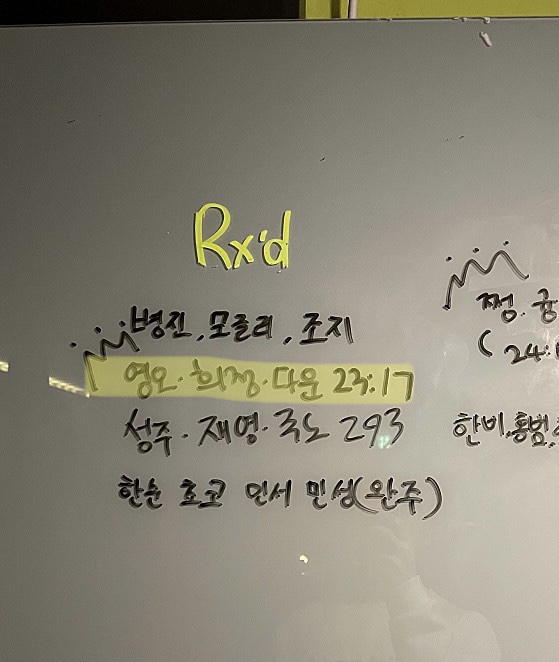 Rx'd
병진, 모클리, 조지
영오·희정·다운 23:17
성주·재영·국노 293
한순 호코 민서 민성(완주)
쩡·귱
(24:
한비,홍범,